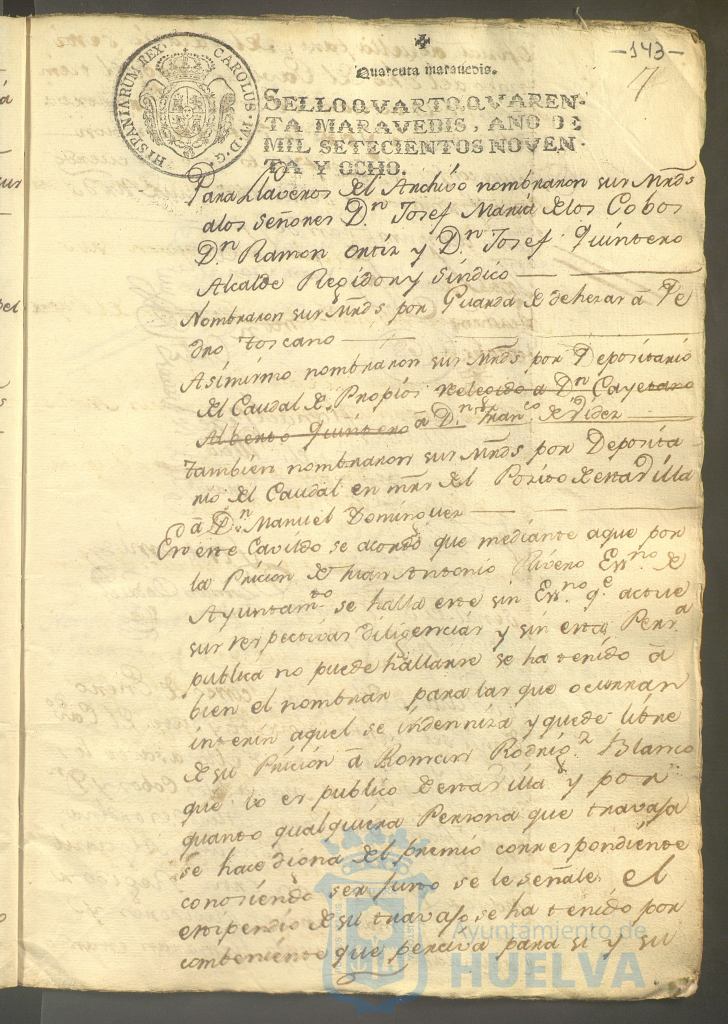 -143-
7
Quarenta maravedis.
HISPANIARUM REX. CAROLUS IV. D. G.
SELLO QVARTO, QVAREN-
TA MARAVEDIS, AÑO DE
MIL SETECIENTOS NOVEN-
TA Y OCHO.
Para Llaveros del Archivo nombraron sus Mrds
a los Señores Dn Josef Maria de los Cobos
Dn Ramon Ortiz y Dn Josef Quintero
Alcalde Regidor y Sindico
Nombraron sus Mrds por Guarda de dehezas a Pe
dro Toscano
Asimismo nombraron sus Mrds por Depositario
del Caudal de Propios relegido a Dn Cayetano
Alberto Quintero a Dn Franco de
tambien nombraron sus Mrds por Deposita
rio del Caudal en mrs del Posito de esta Villa
a Dn Manuel Dominguez
En este Cavildo se acordó que mediante aque por
la Pricion de Juan Antonio Rivero Essno de
Ayuntamto se halla este sin Essno qe actue
sus respectivas diligencias y sin esta Persa
publica no puede hallarse se ha tenido a
bien el nombrar para las que ocurran
interin aquel se indenniza y quede libre
de su Pricion a Roman Rodrigz Blanco
que lo es publico de esta Villa y por
quanto qualquiera Persona que travaja
se hace digna del premio correspondiente
conosiendo ser justo se le señale el
estipendio de su travajo, se ha tenido por
combeniente que perciva para si y su
Ayuntamiento de
HUELVA